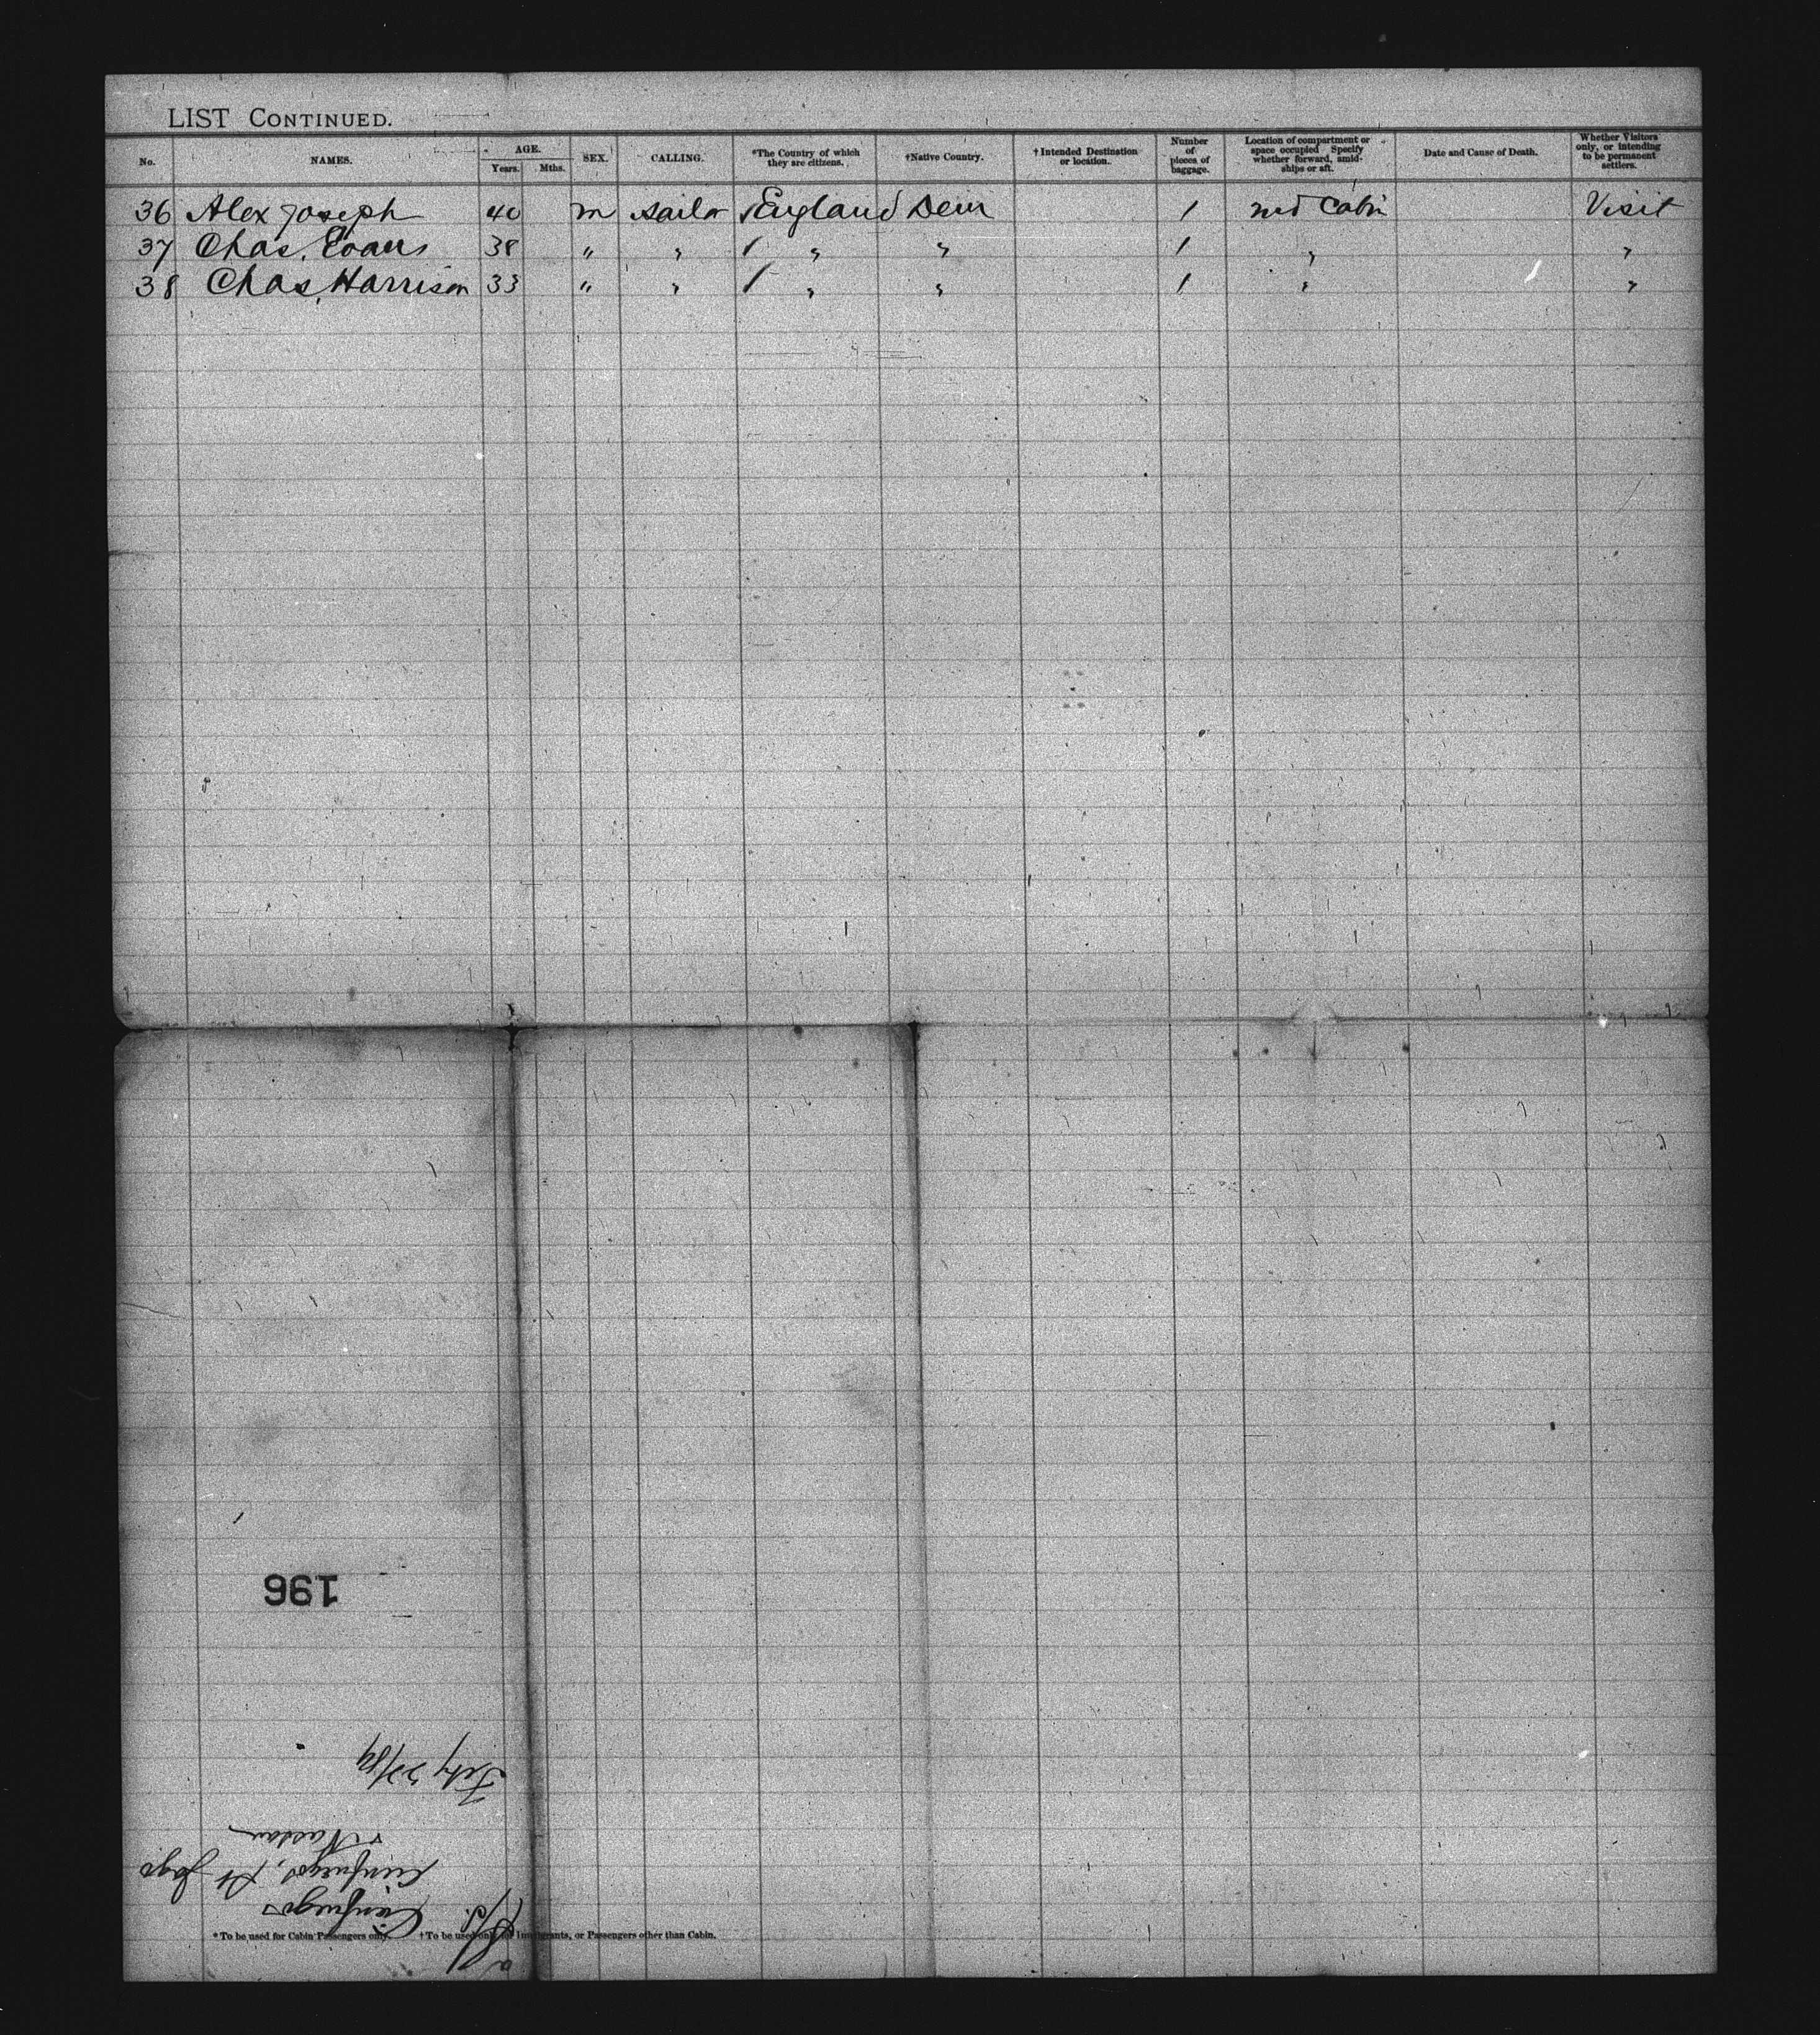 LIST CONTINUED.
No. NAMES. AGE. Years. Mths. SEX. CALLING. *The Country of which they are citizens. †Native Country. †Intended Destination or location. Number of pieces of baggage. Location of compartment or space occupied Specify whether forward, amidships or aft. Date and Cause of Death. Whether Visitors only, or intending to be permanent settlers.
36 Alex Joseph 40 m sailor England 1 Cabin Visit
37 Chas. Evans 38 " " 1 " " 1 " "
38 Chas. Harrison 33 " " 1 " " 1 " "
196
*To be used for Cabin Passengers only. †To be used only for Immigrants, or Passengers other than Cabin.
S/S. Cienfuegos
Cienfuegos, St Jago
& Nassau
Feby 22/89